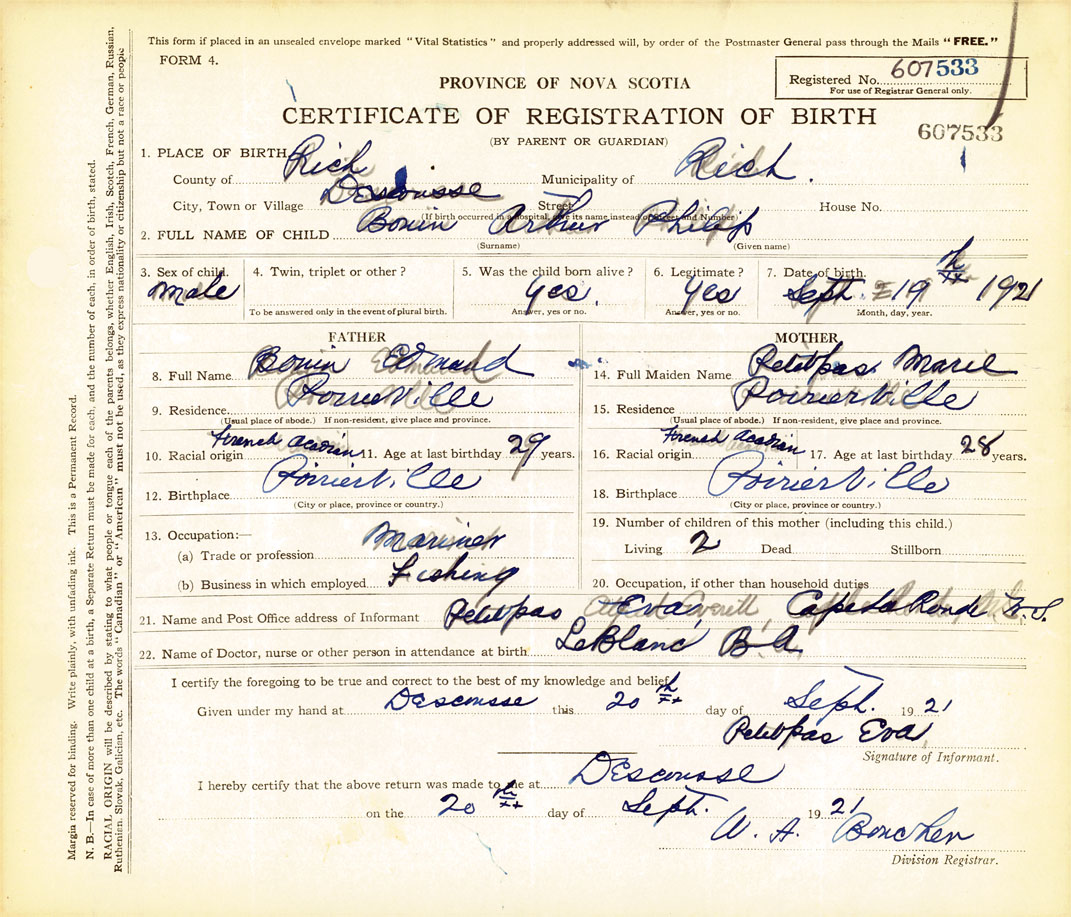 This form if placed in an unsealed envelope marked "Vital Statistics" and properly addressed will, by order of the Postmaster General pass through the Mails "FREE."
FORM 4.
Registered No. 607533
For use of Registrar General only.
PROVINCE OF NOVA SCOTIA
CERTIFICATE OF REGISTRATION OF BIRTH
607533
(BY PARENT OR GUARDIAN)
1. PLACE OF BIRTH
County of Rich Municipality of Rich.
City, Town or Village Descousse Street House No.
(If birth occurred in a hospital, give its name instead of Street and Number)
2. FULL NAME OF CHILD Bonin Arthur Philip
(Surname) (Given name)
3. Sex of child. 4. Twin, triplet or other? 5. Was the child born alive? 6. Legitimate? 7. Date of birth.
Male Yes. Yes Sept. 19th 1921
To be answered only in the event of plural birth. Answer, yes or no. Answer, yes or no. Month, day, year.
FATHER
8. Full Name Bonin Edmund
9. Residence PoirierVille
(Usual place of abode.) If non-resident, give place and province.
10. Racial origin French Acadian 11. Age at last birthday 29 years.
12. Birthplace PoirierVille
(City or place, province or country.)
13. Occupation:—
(a) Trade or profession Mariner
(b) Business in which employed Fishing
MOTHER
14. Full Maiden Name Petitpas Marie
15. Residence PoirierVille
(Usual place of abode.) If non-resident, give place and province.
16. Racial origin French Acadian 17. Age at last birthday 28 years.
18. Birthplace PoirierVille
(City or place, province or country.)
19. Number of children of this mother (including this child.)
Living 2 Dead Stillborn
20. Occupation, if other than household duties
21. Name and Post Office address of Informant Petitpas Eva Cape La Ronde N.S.
22. Name of Doctor, nurse or other person in attendance at birth LeBlanc B A
I certify the foregoing to be true and correct to the best of my knowledge and belief
Given under my hand at Descousse this 20th day of Sept. 1921
Petitpas Eva
Signature of Informant.
I hereby certify that the above return was made to me at DEscousse
on the 20th day of Sept. 1921
W. A. Boucher
Division Registrar.
Margin reserved for binding. Write plainly, with unfading ink. This is a Permanent Record.
N. B.—In case of more than one child at a birth, a Separate Return must be made for each, and the number of each, in order of birth, stated.
RACIAL ORIGIN will be described by stating to what people or tongue each of the parents belongs, whether English, Irish, Scotch, French, German, Russian,
Ruthenian, Slovak, Galician, etc. The words "Canadian" or "American" must not be used, as they express nationality or citizenship but not a race or people